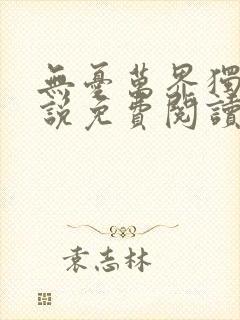 無憂萬界獨
說免費閱讀
袁志林